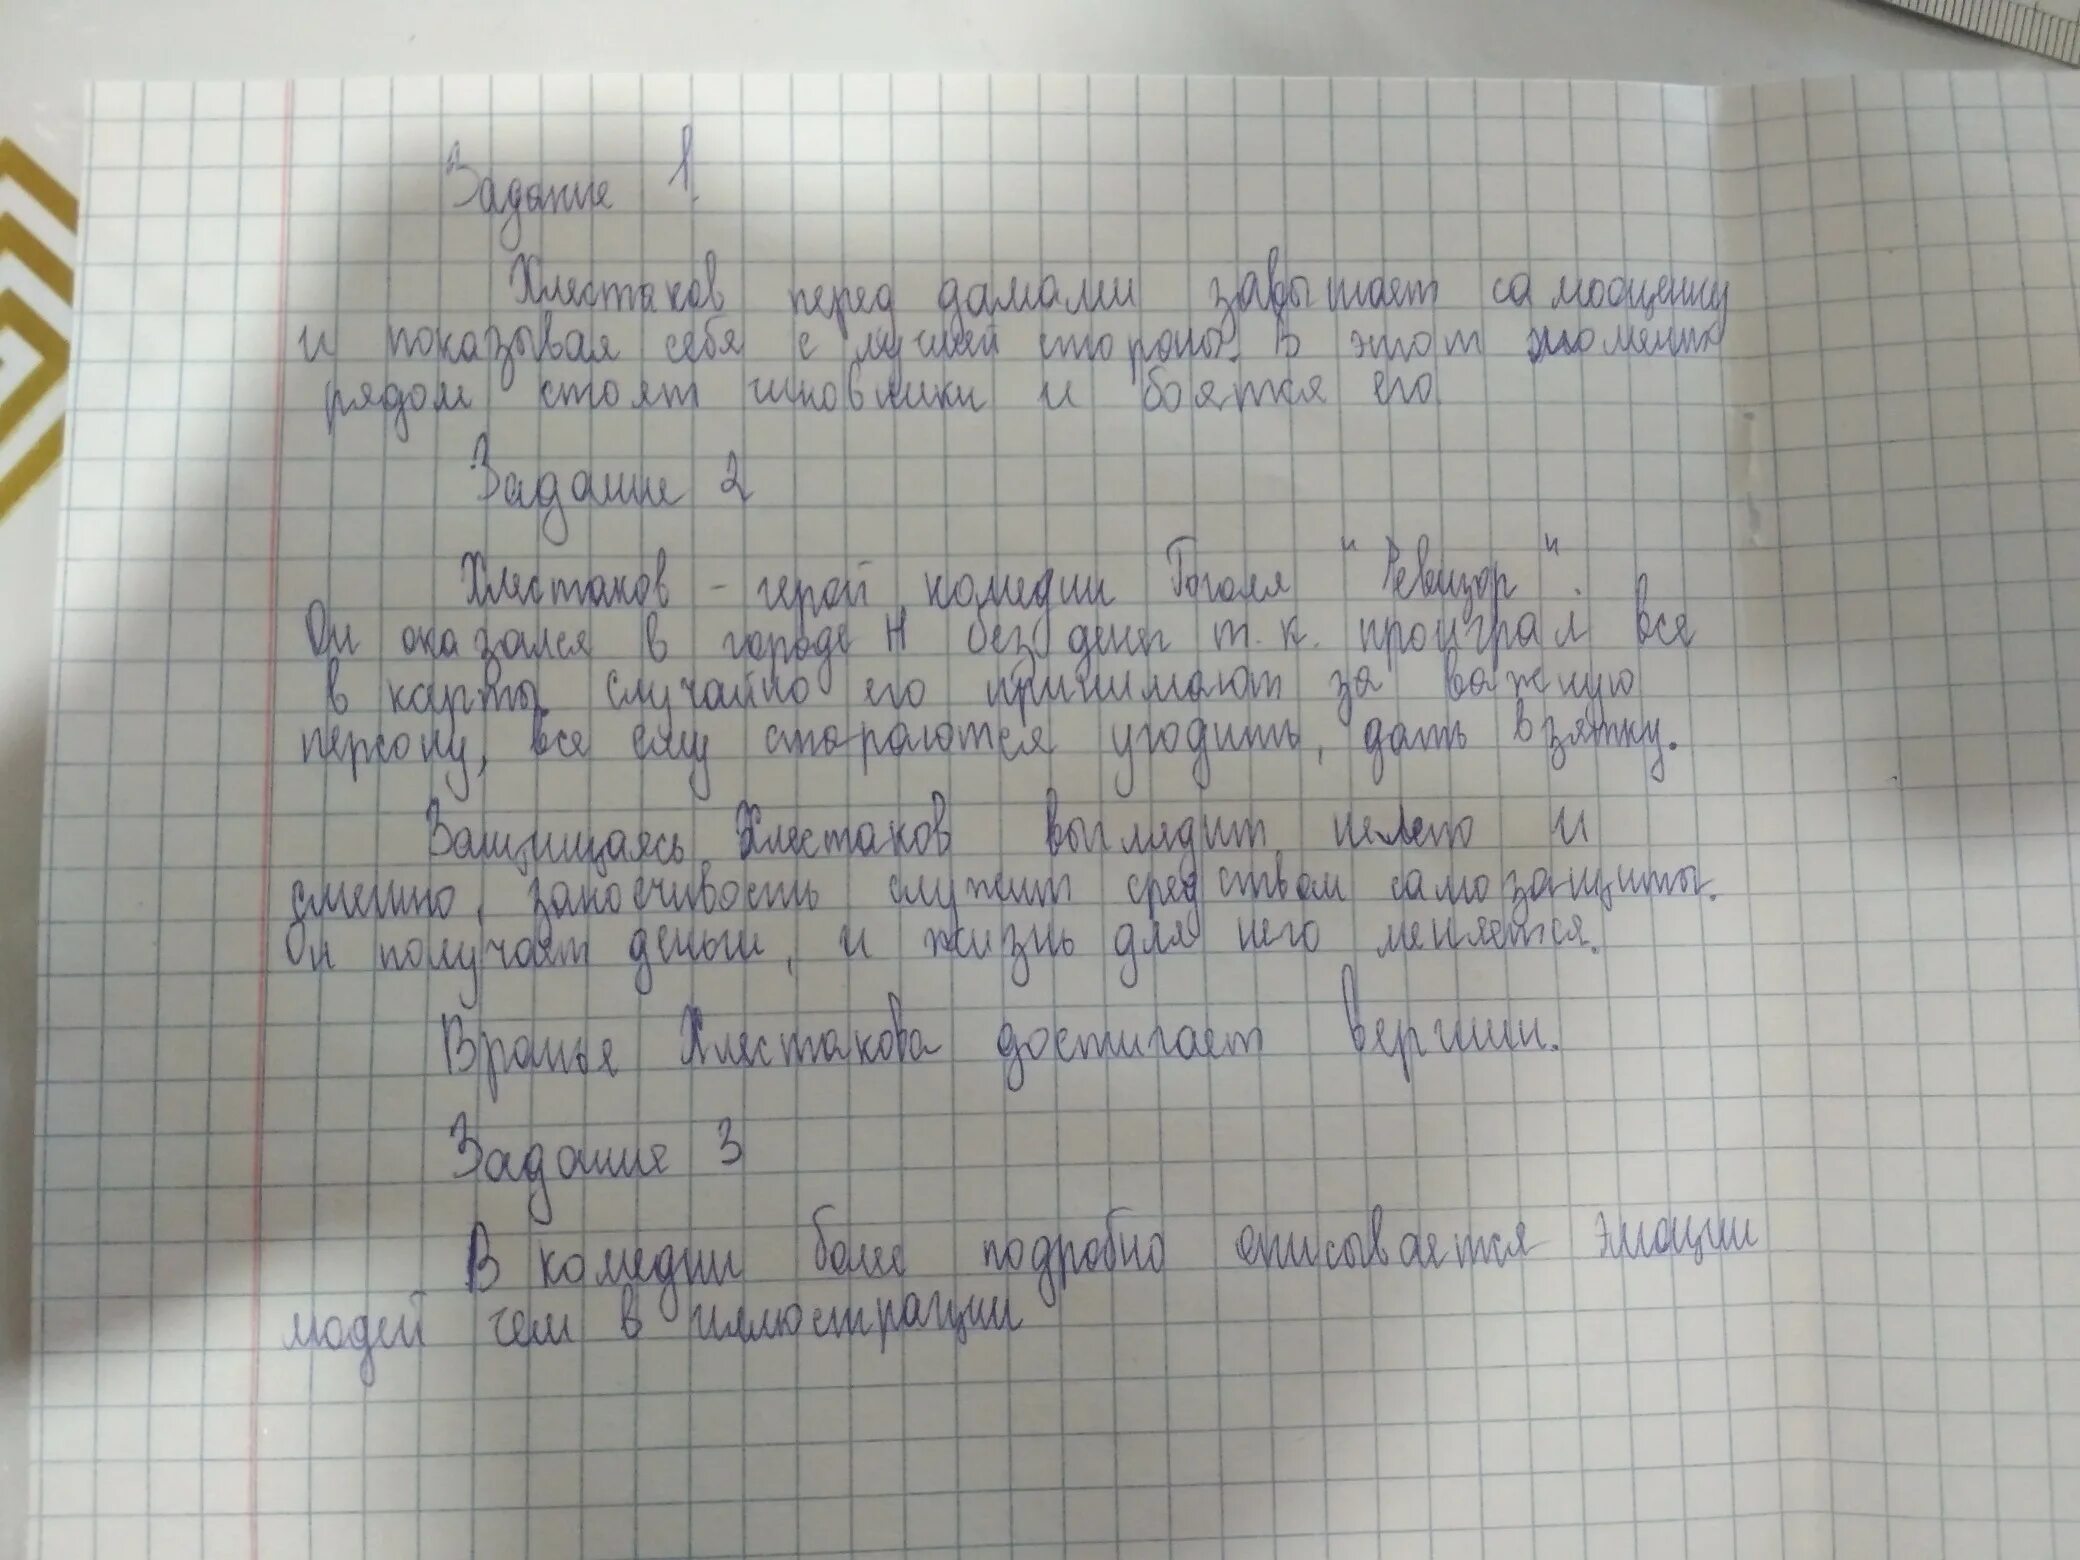 Задание 1.
Хлестаков перед дамами завышает самооценку
и показывая себя с лучшей стороны. В этот момент
рядом стоят чиновники и боятся его
Задание 2
Хлестаков - герой комедии Гоголя "Ревизор".
Он оказался в городе Н без денег т.к. проиграл все
в карты. случайно его принимают за важную
персону, все ему стараются угодить, дать взятку.
Защищаясь, Хлестаков выглядит нелепо и
смешно, заносчивость служит средством самозащиты.
Он получает деньги, и жизнь для него меняется.
Вранье Хлестакова достигает вершин.
Задание 3
В комедии более подробно описывается эмоции
людей чем в иллюстрации